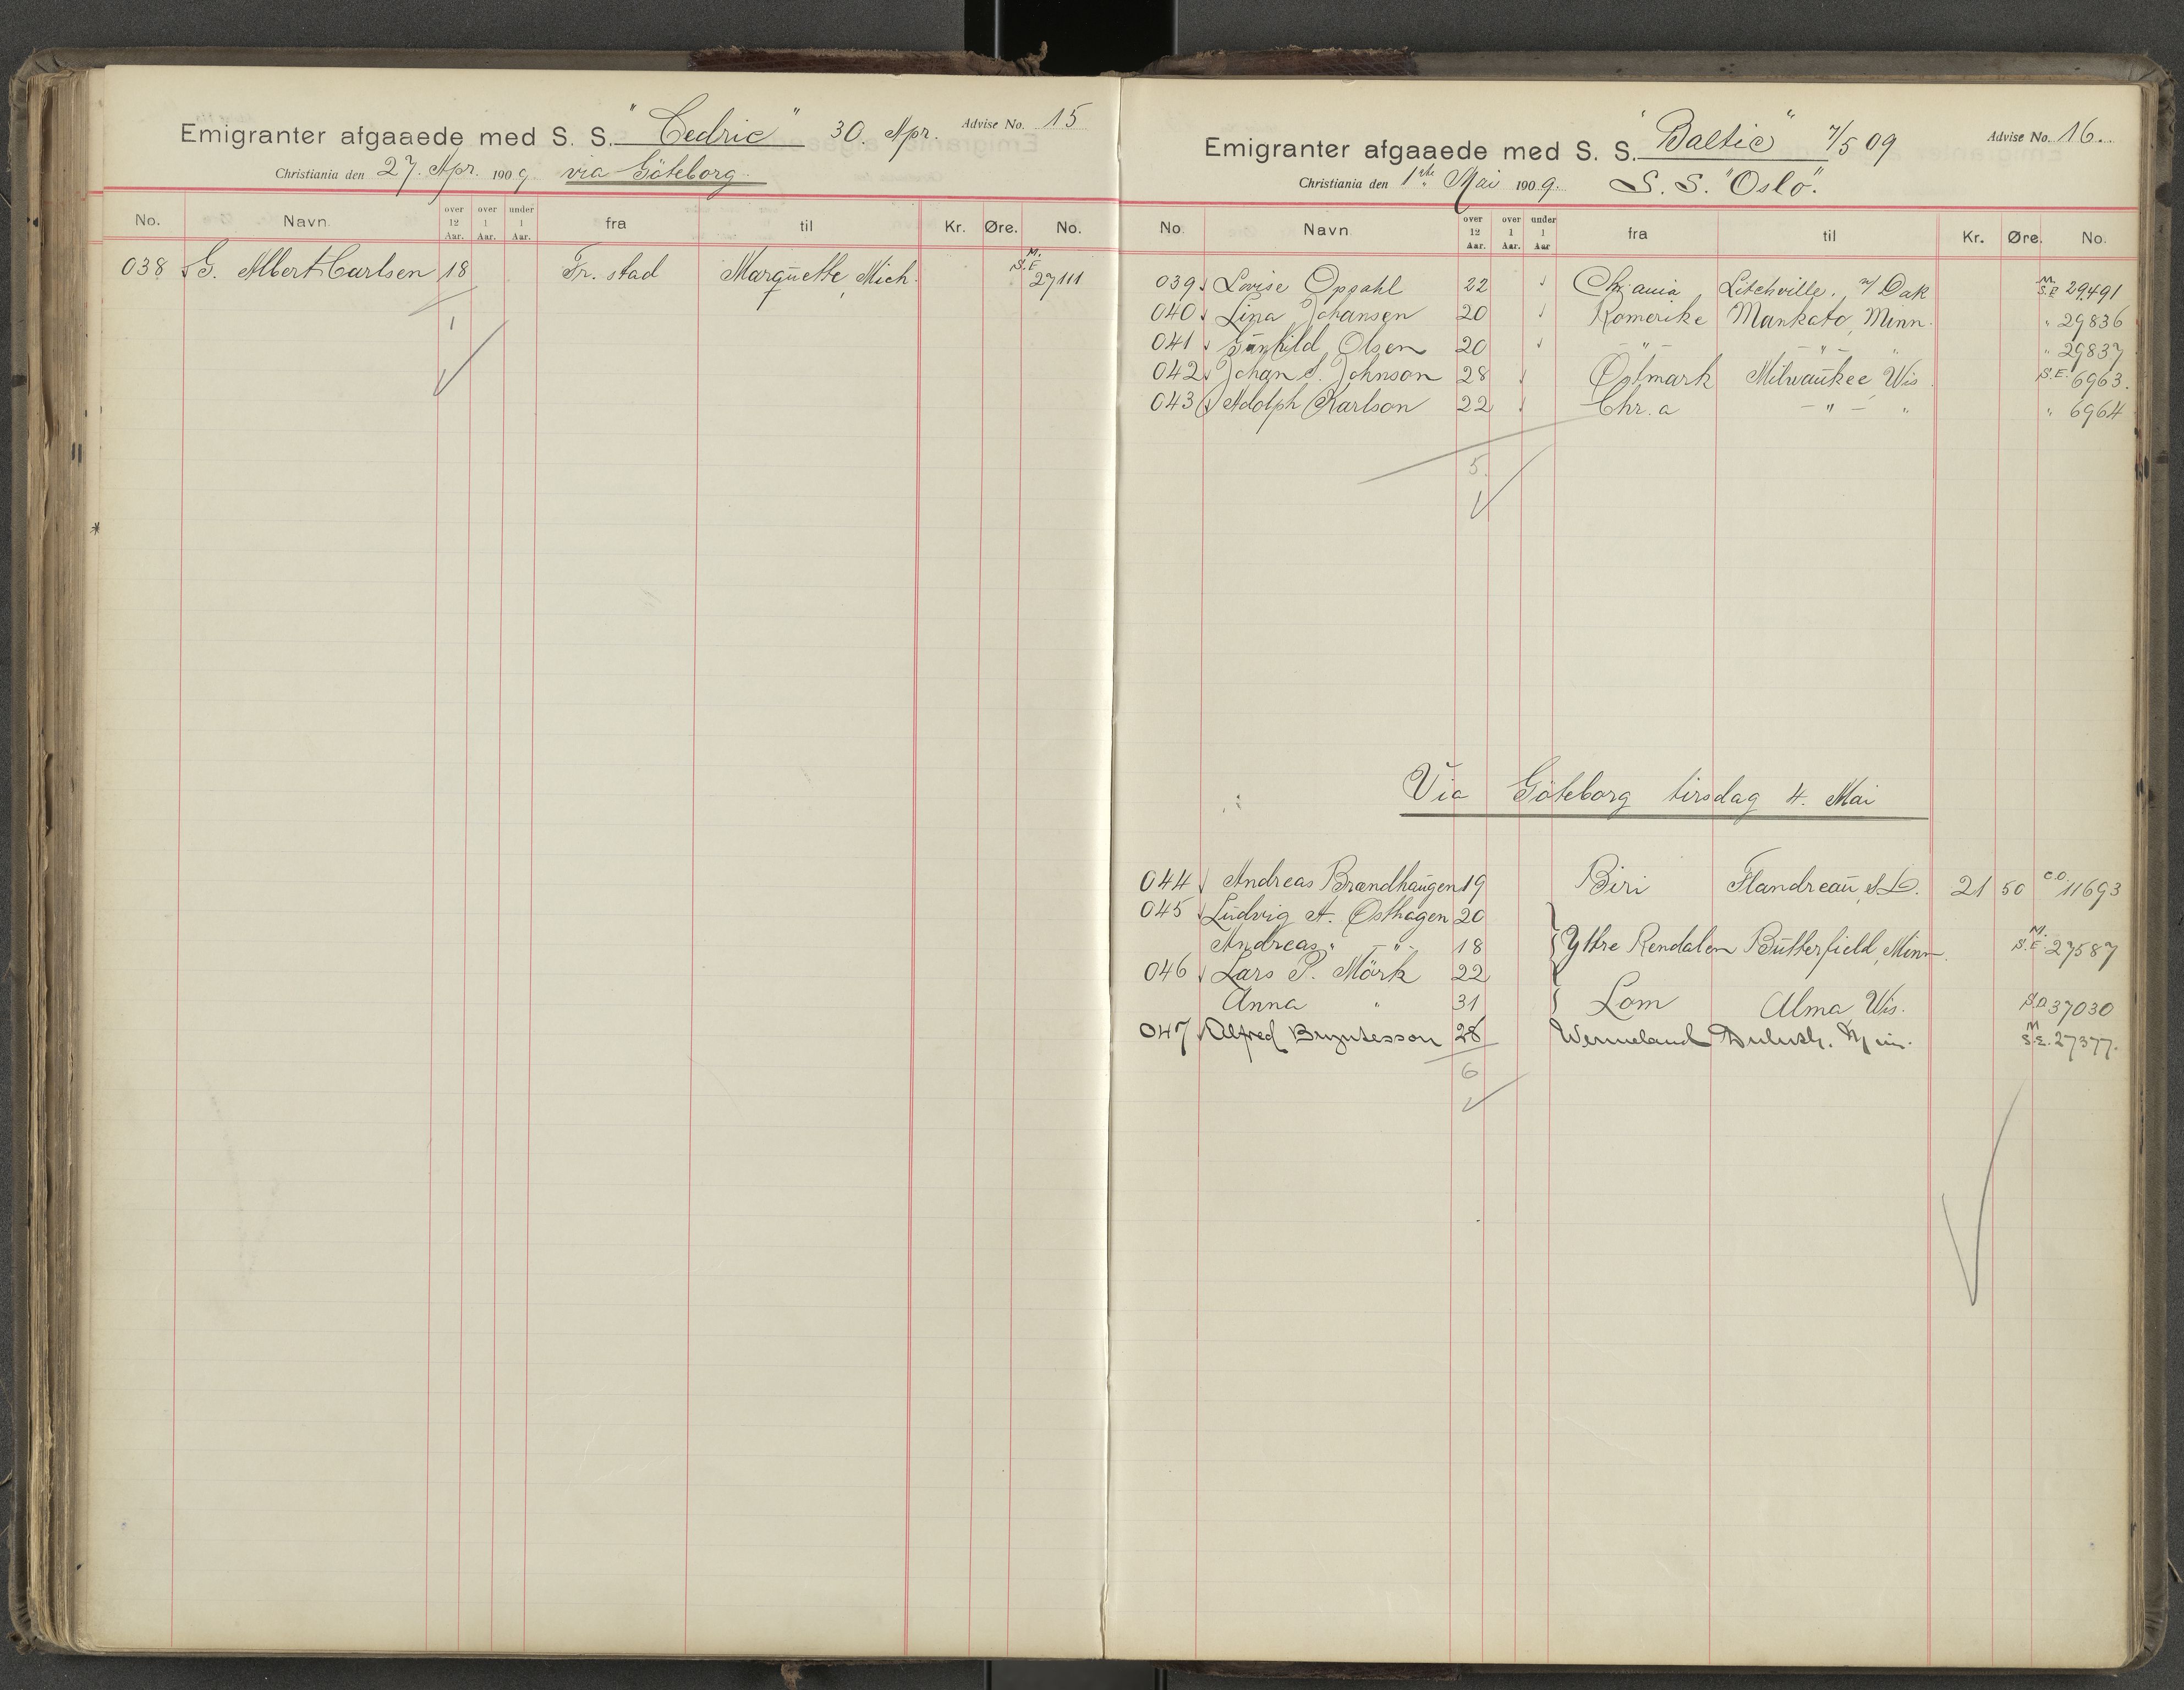 Emigranter afgaaede med S. S. "Cedric" 30. Apr. Advise No. 15
Christiania den 27. Apr. 1909. via Göteborg.
No. Navn. over 12 Aar. over 1 Aar. under 1 Aar. fra til Kr. Øre. No.
038 G. Albert Carlsen 18 Fr. stad Marquette, Mich. M. S.E 27111
1
Emigranter afgaaede med S. S. "Baltic" 7/5 09 Advise No. 16.
Christiania den 1ste Mai 1909. S. S. "Oslo".
No. Navn over 12 Aar. over 1 Aar. under 1 Aar fra til Kr. Øre. No.
039 Lovise Oppahl 22 Chr.ania Litchville. n/ Dak M. S.E 29491
040 Lina Johansen 20 Romerike Mankato, Minn. " 29836
041 Gunhild Olsen 20 - " - - " - " " 29837
042 Johan S. Johnson 28 Östmark Milwaukee, Wis S.E. 6963.
043 Adolph Karlson 22 Chr. a - " - " " 6964
5.
Via Göteborg tirsdag 4. Mai
044 Andreas Brandhaugen 19 Biri Flandreau, S.D. 21 50 C.O. 11693
045 Ludvig A. Osthagen 20
Andreas " - " - 18 Ytre Rendalen Butterfield, Minn. M. S.E. 27587
046 Lars P. Mörk 22
Anna " 31 Lom Alma, Wis. S.O 37030
047 Alfred Bryntesson 28 Wermeland Duluth. Min. M S.E. 27377.
6